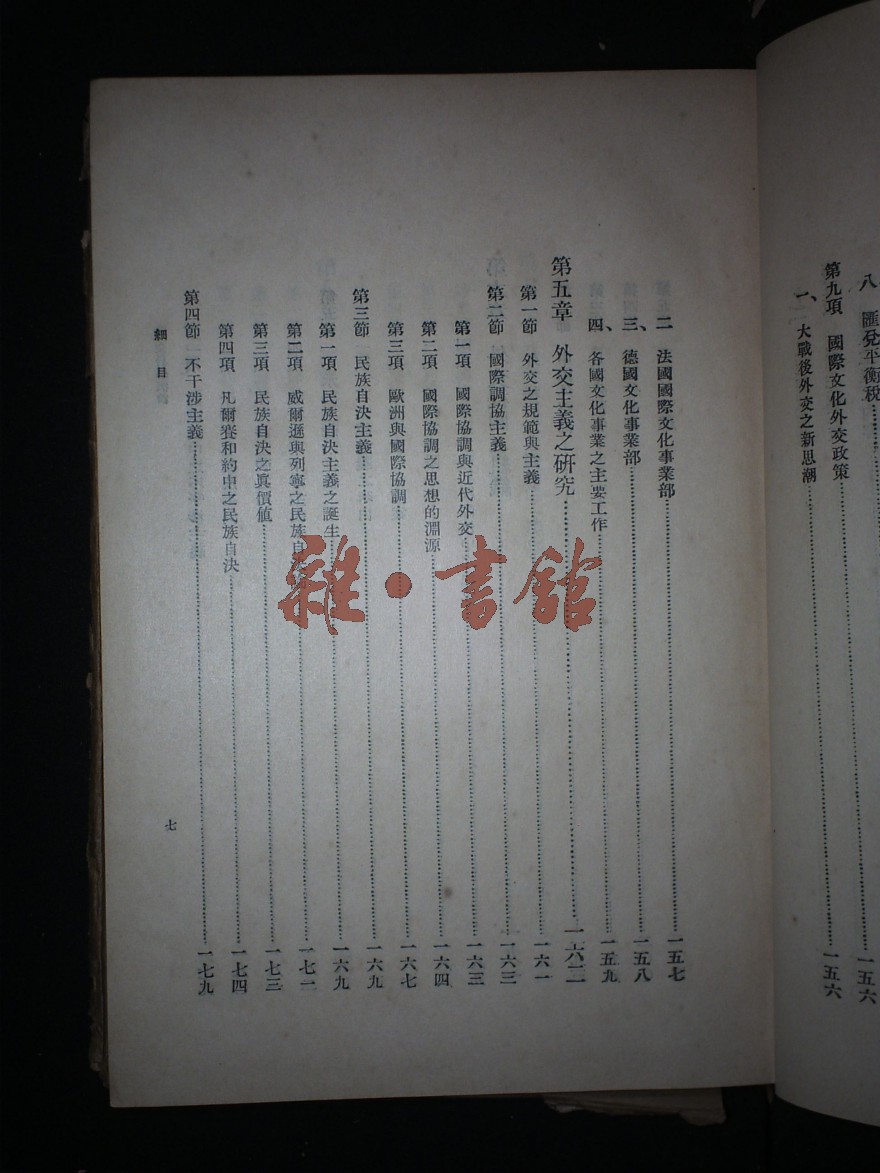 八 匯兌平衡稅……一五六
第九項 國際文化外交政策
一、大戰後外交之新思潮……一五六
二 法國國際文化事業部……一五七
三、德國文化事業部……一五八
四、各國文化事業之主要工作……一五九
第五章 外交主義之研究……一六二
第一節 外交之規範與主義……一六一
第二節 國際調協主義……一六三
第一項 國際協調與近代外交……一六三
第二項 國際協調之思想的淵源……一六四
第三項 歐洲與國際協調……一六七
第三節 民族自決主義……一六九
第一項 民族自決主義之誕生……一六九
第二項 威爾遜與列寧之民族自……一七一
第三項 民族自決之眞價値……一七三
第四項 凡爾賽和約中之民族自決……一七四
第四節 不干涉主義……一七九
細目
七
雜·書館